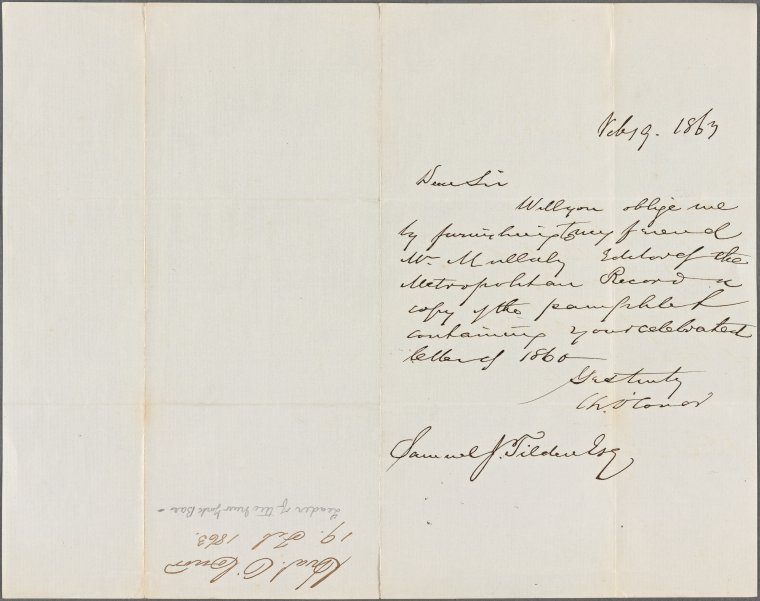 Feb 19. 1863
Dear Sir
Will you oblige me
by furnishing to my friend
Mr. Mullaly Editor of the
Metropolitan Record a
copy of the pamphlet
containing your celebrated
letter of 1860
Yrs truly
Ch. O'Conor
Samuel J. Tilden Esq
Chas. O'Conor
19. Feb 1863.
Leader of the New York Bar -